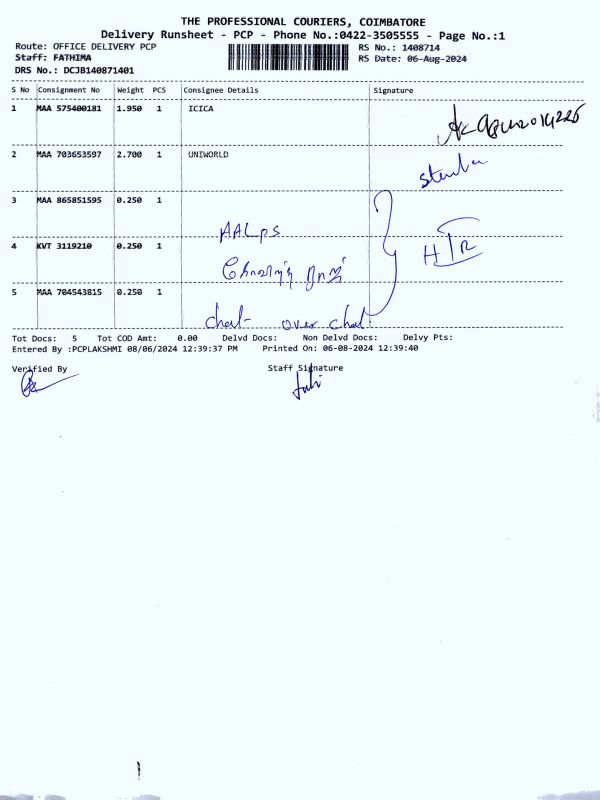 THE PROFESSIONAL COURIERS, COIMBATORE
Delivery Runsheet - PCP - Phone No.:0422-3505555 - Page No.:1
Route: OFFICE DELIVERY PCP
Staff: FATHIMA
DRS No.: DCJB140871401
RS No.: 1408714
RS Date: 06-Aug-2024
S No Consignment No Weight PCS Consignee Details Signature
1 MAA 575400181 1.950 1 ICICA
2 MAA 703653597 2.700 1 UNIWORLD
3 MAA 865851595 0.250 1
AALPS
4 KVT 3119210 0.250 1
5 MAA 704543815 0.250 1
over
Tot Docs: 5 Tot COD Amt: 0.00 Delvd Docs: Non Delvd Docs: Delvy Pts:
Entered By :PCPLAKSHMI 08/06/2024 12:39:37 PM Printed On: 06-08-2024 12:39:40
Verified By Staff Signature